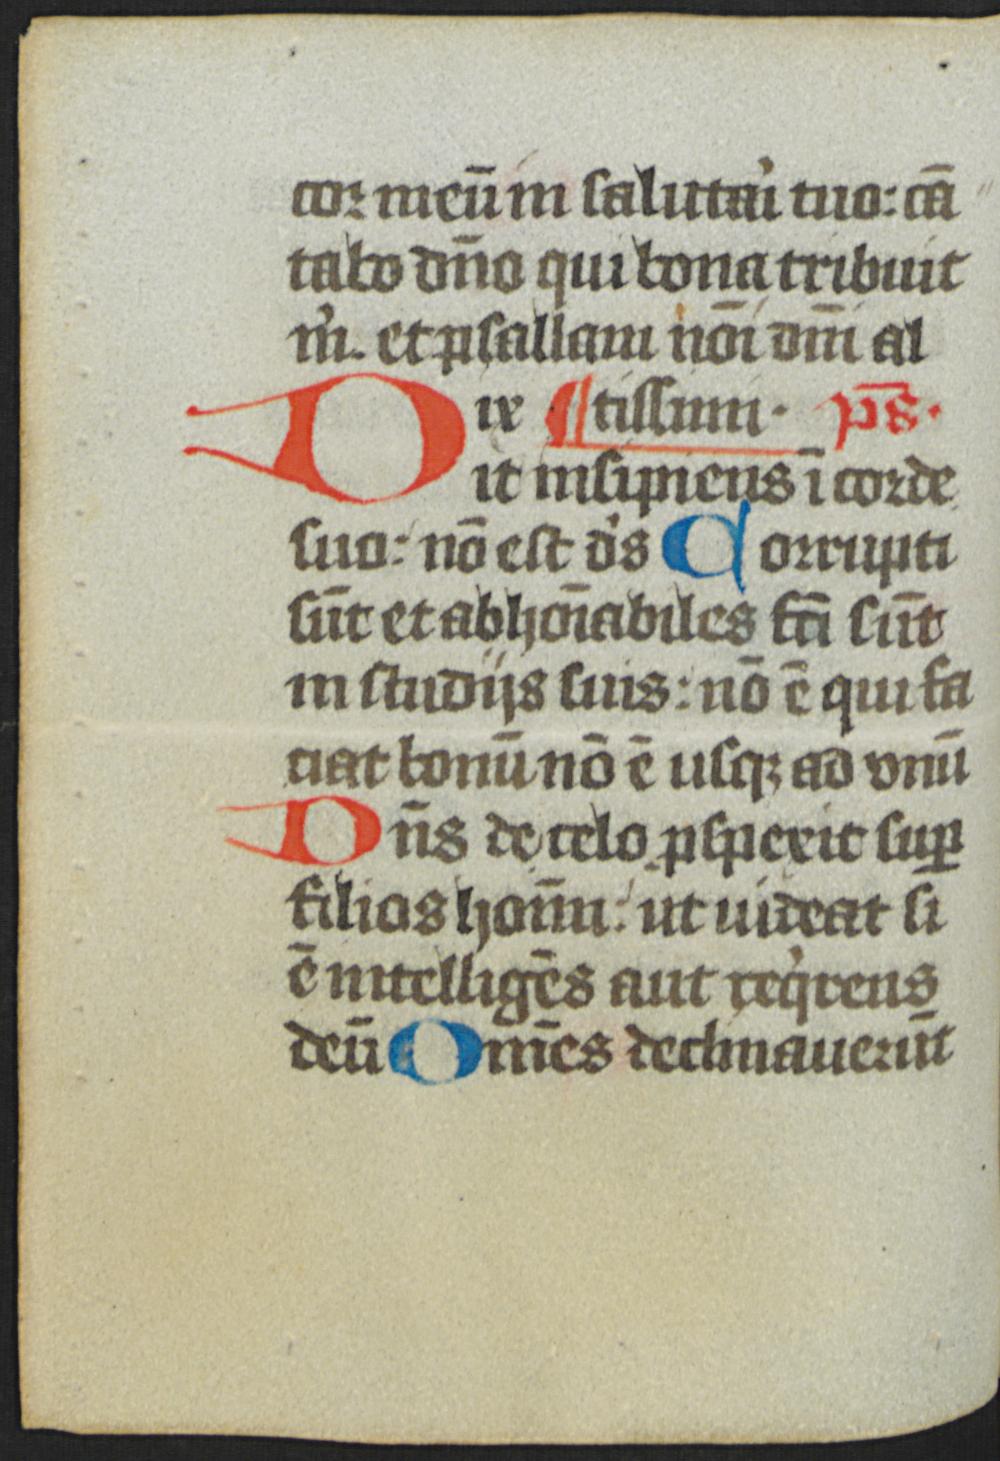 cor meū in salutaͥi tuo: cā
tabo dn̄o qui bona tribuit
m̍. et psallam nōi dn̄i al
Dix ¶tissimi. ps̄.
it insipiens ī corde
suo: nō est d̍s Corrupti
sūt et abhoīabiles fc̄i sūt
in studijs suis: nō ē qui fa
ciat bonū nō ē usqꝫ ad vnū
Dn̄s de celo ꝓspexit suꝑ
filios hoīm: ut uideat si
ē intelligēs aut reqͥrens
deū Om̄es declinauerūt